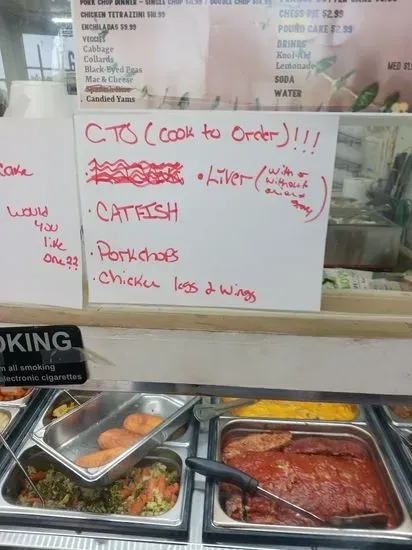 PORK CHOP DINNER - SINGLE CHOP
CHICKEN TETRAZZINI $10.99
ENCHILADAS $9.99
VEGGIES
Cabbage
Collards
Black-Eyed Peas
Mac & Cheese
Spanish Rice
Candied Yams
CHESS PIE $2.99
POUND CAKE $2.99
DRINKS
Kool-Aid
Lemonade
SODA
WATER
MED
cake
would
you
like
one??
CTO (Cook to Order)!!!
• Liver (with or without onions
• CATFISH
• Porkchops
• Chicken legs & wings
OKING
m all smoking
electronic cigarettes